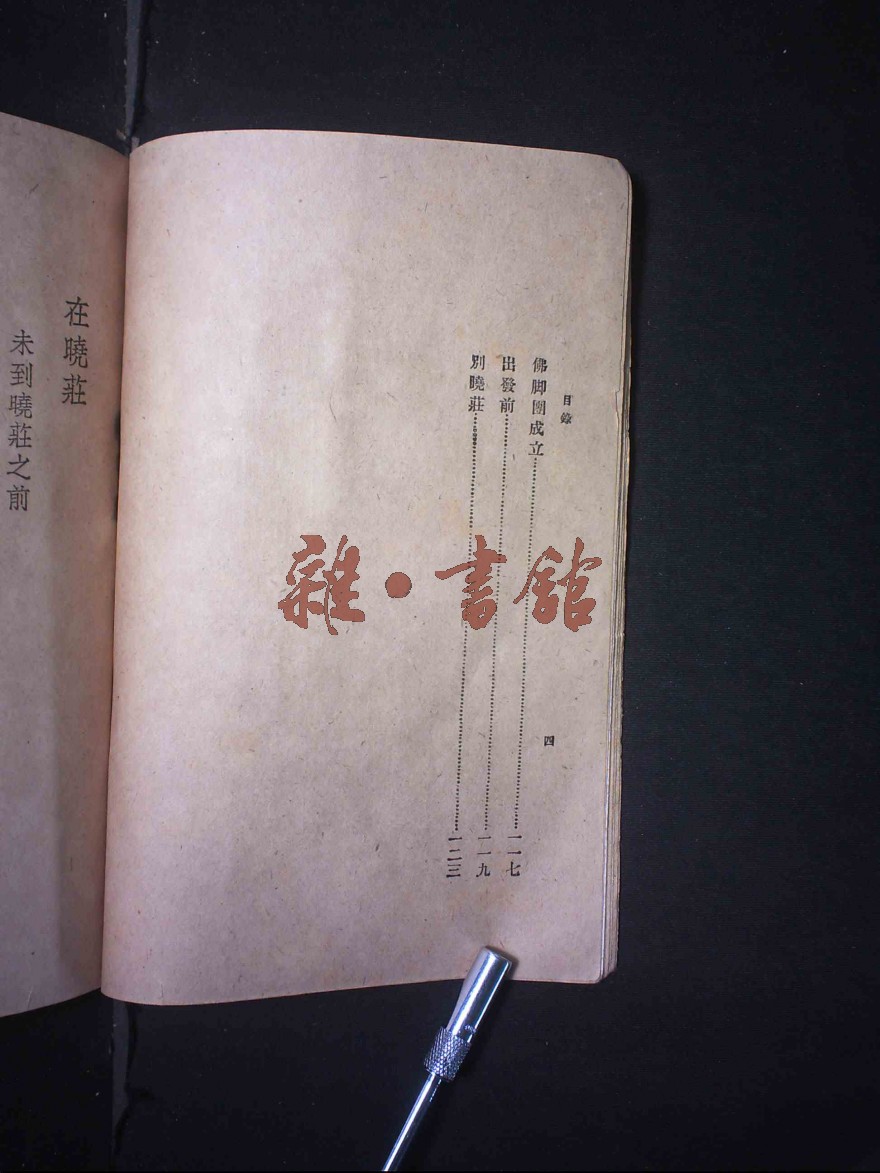 目錄
四
佛脚團成立⋯⋯一一七
出發前⋯⋯一一九
別曉莊⋯⋯一二三
在曉莊
未到曉莊之前
雜·書館